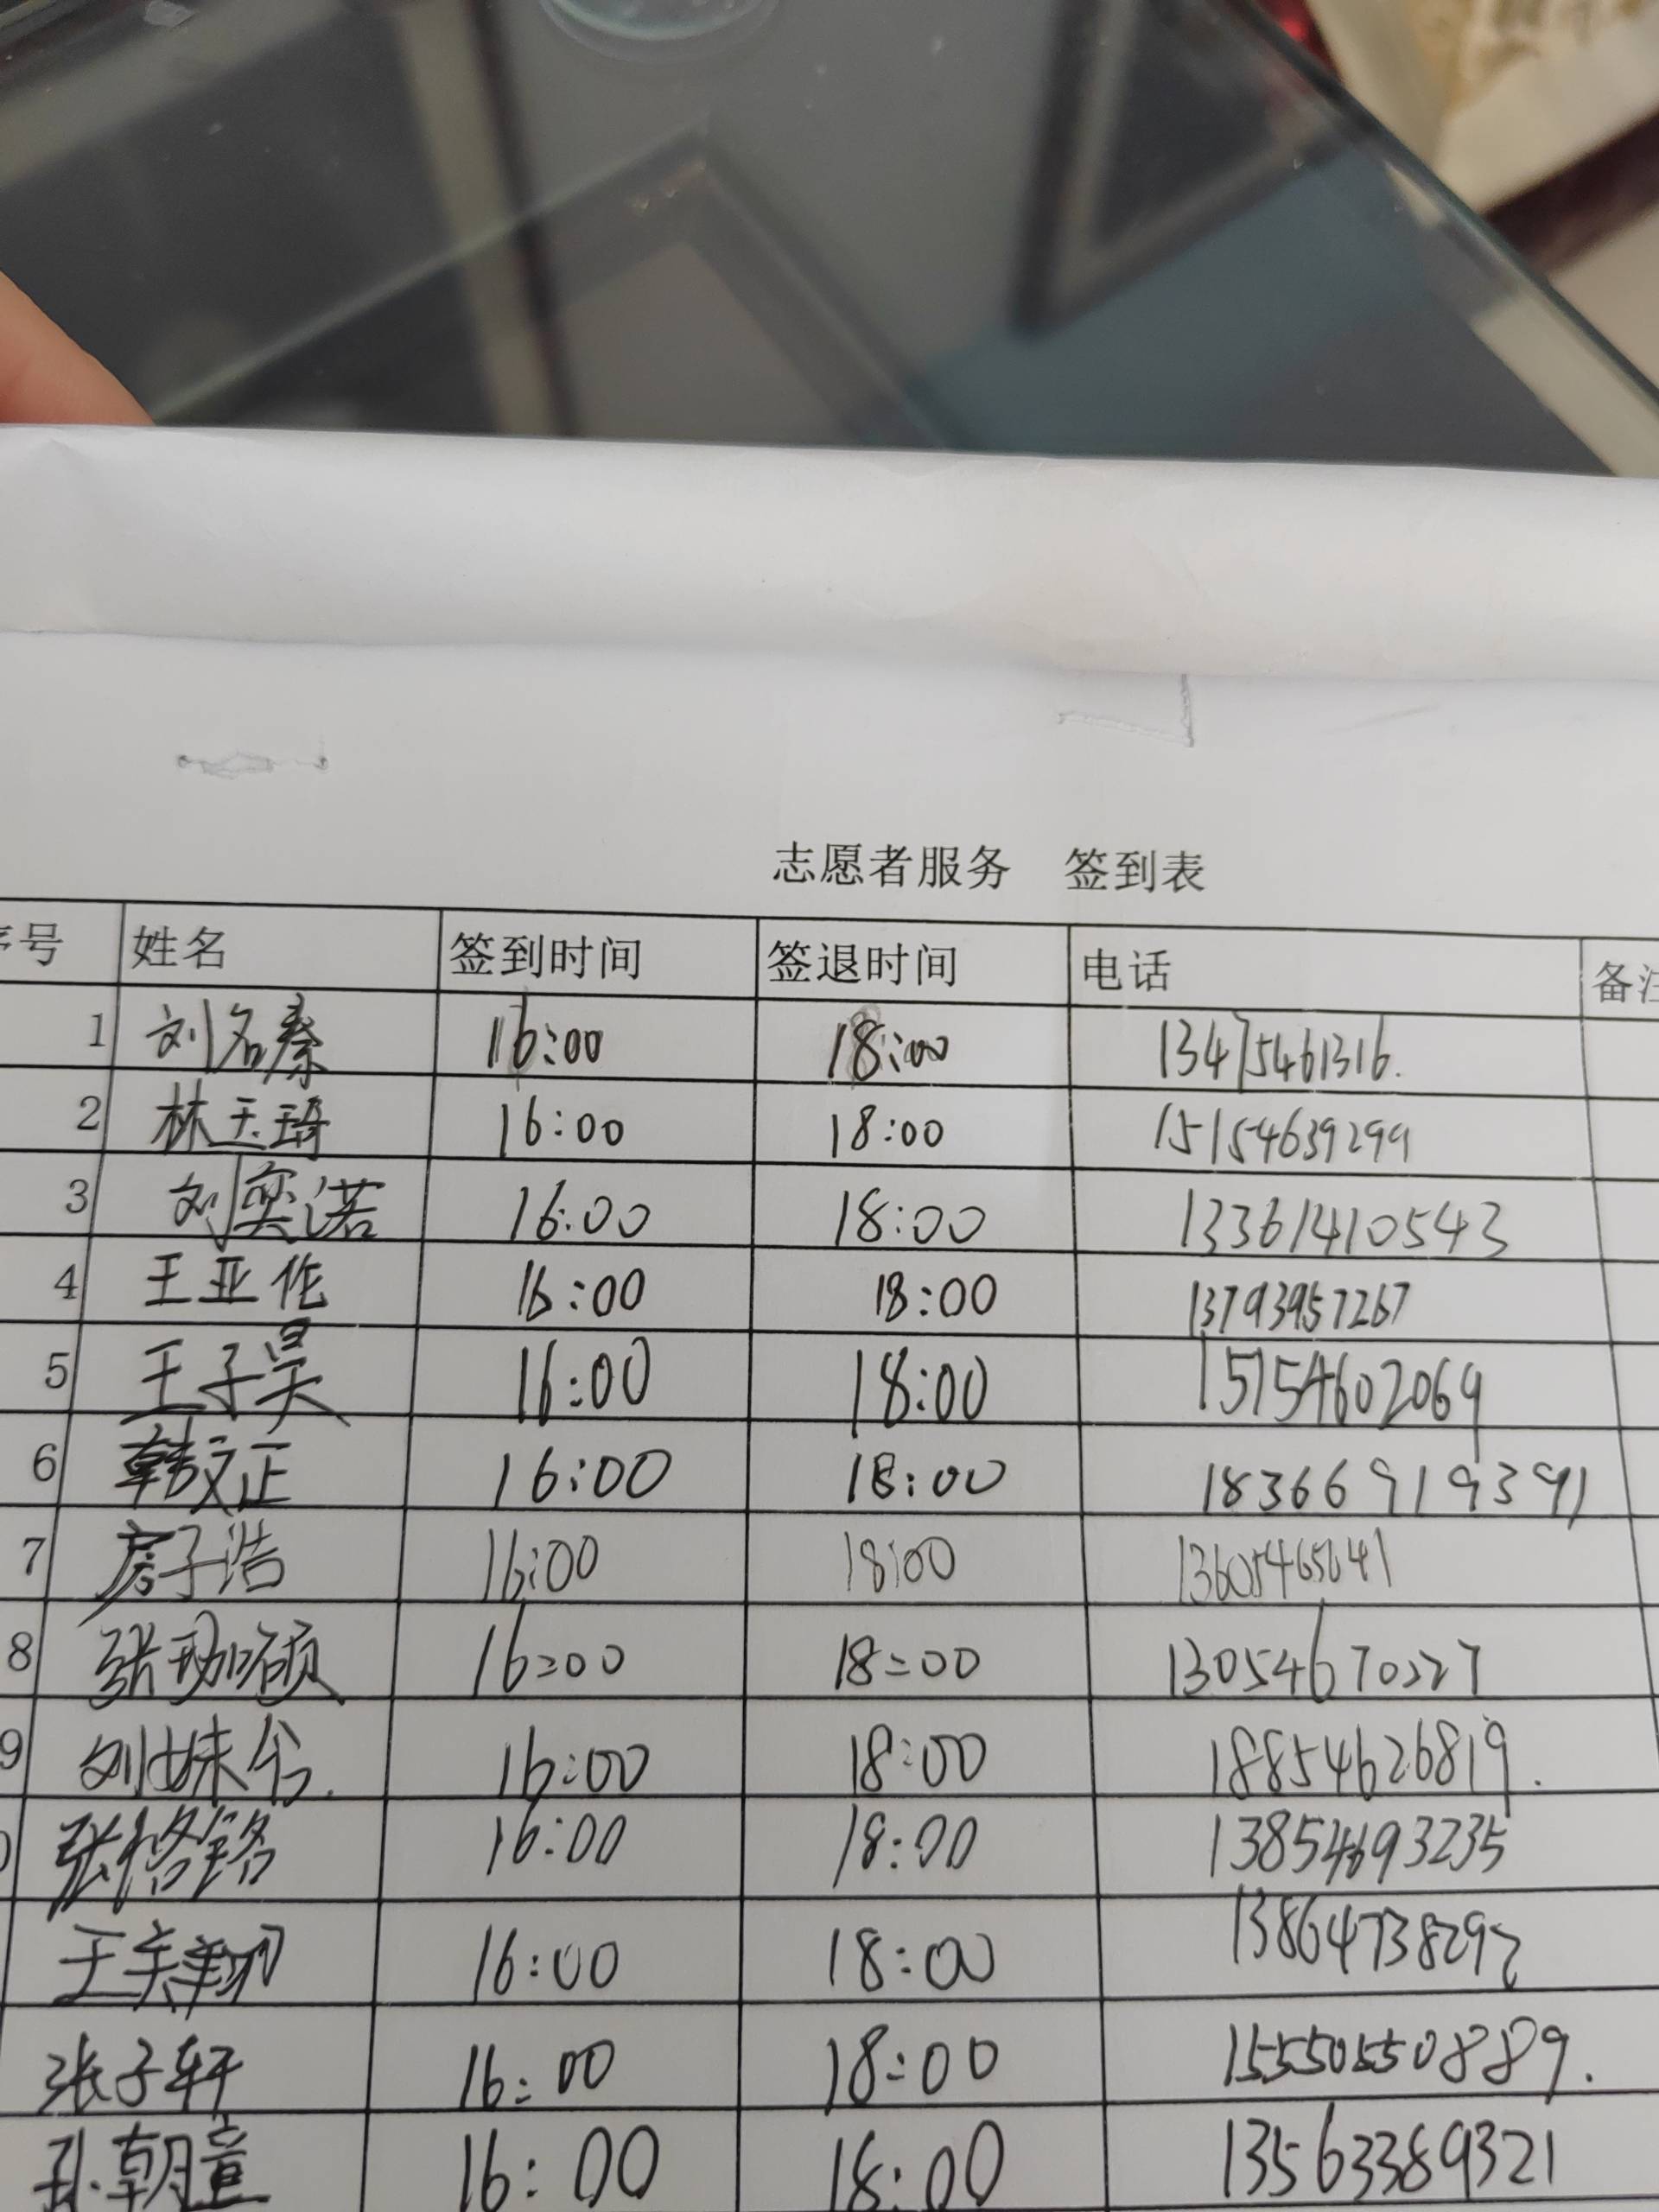 志愿者服务 签到表
序号 姓名 签到时间 签退时间 电话 备注
1 刘名秦 16:00 18:00 13475461316.
2 林玉琦 16:00 18:00 15154639299
3 刘奕诺 16:00 18:00 13361410543
4 王亚伦 16:00 18:00 13793957267
5 王子昊 16:00 18:00 15154602069
6 韩文正 16:00 18:00 18366919391
7 房子浩 16:00 18:00 13605465641
8 张珈硕 16:00 18:00 13054670227
9 16:00 18:00 18854626819.
16:00 18:00 13854693235
16:00 18:00 13864738292
张子轩 16:00 18:00 15550550889.
孙朝童 16:00 18:00 13563389321